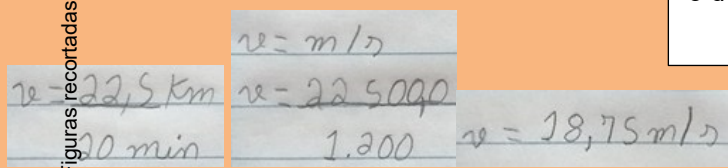 Figuras recortadas
v = 22,5 Km
20 min
v = m/s
v = 22 5000
1.200
v = 18,75 m/s